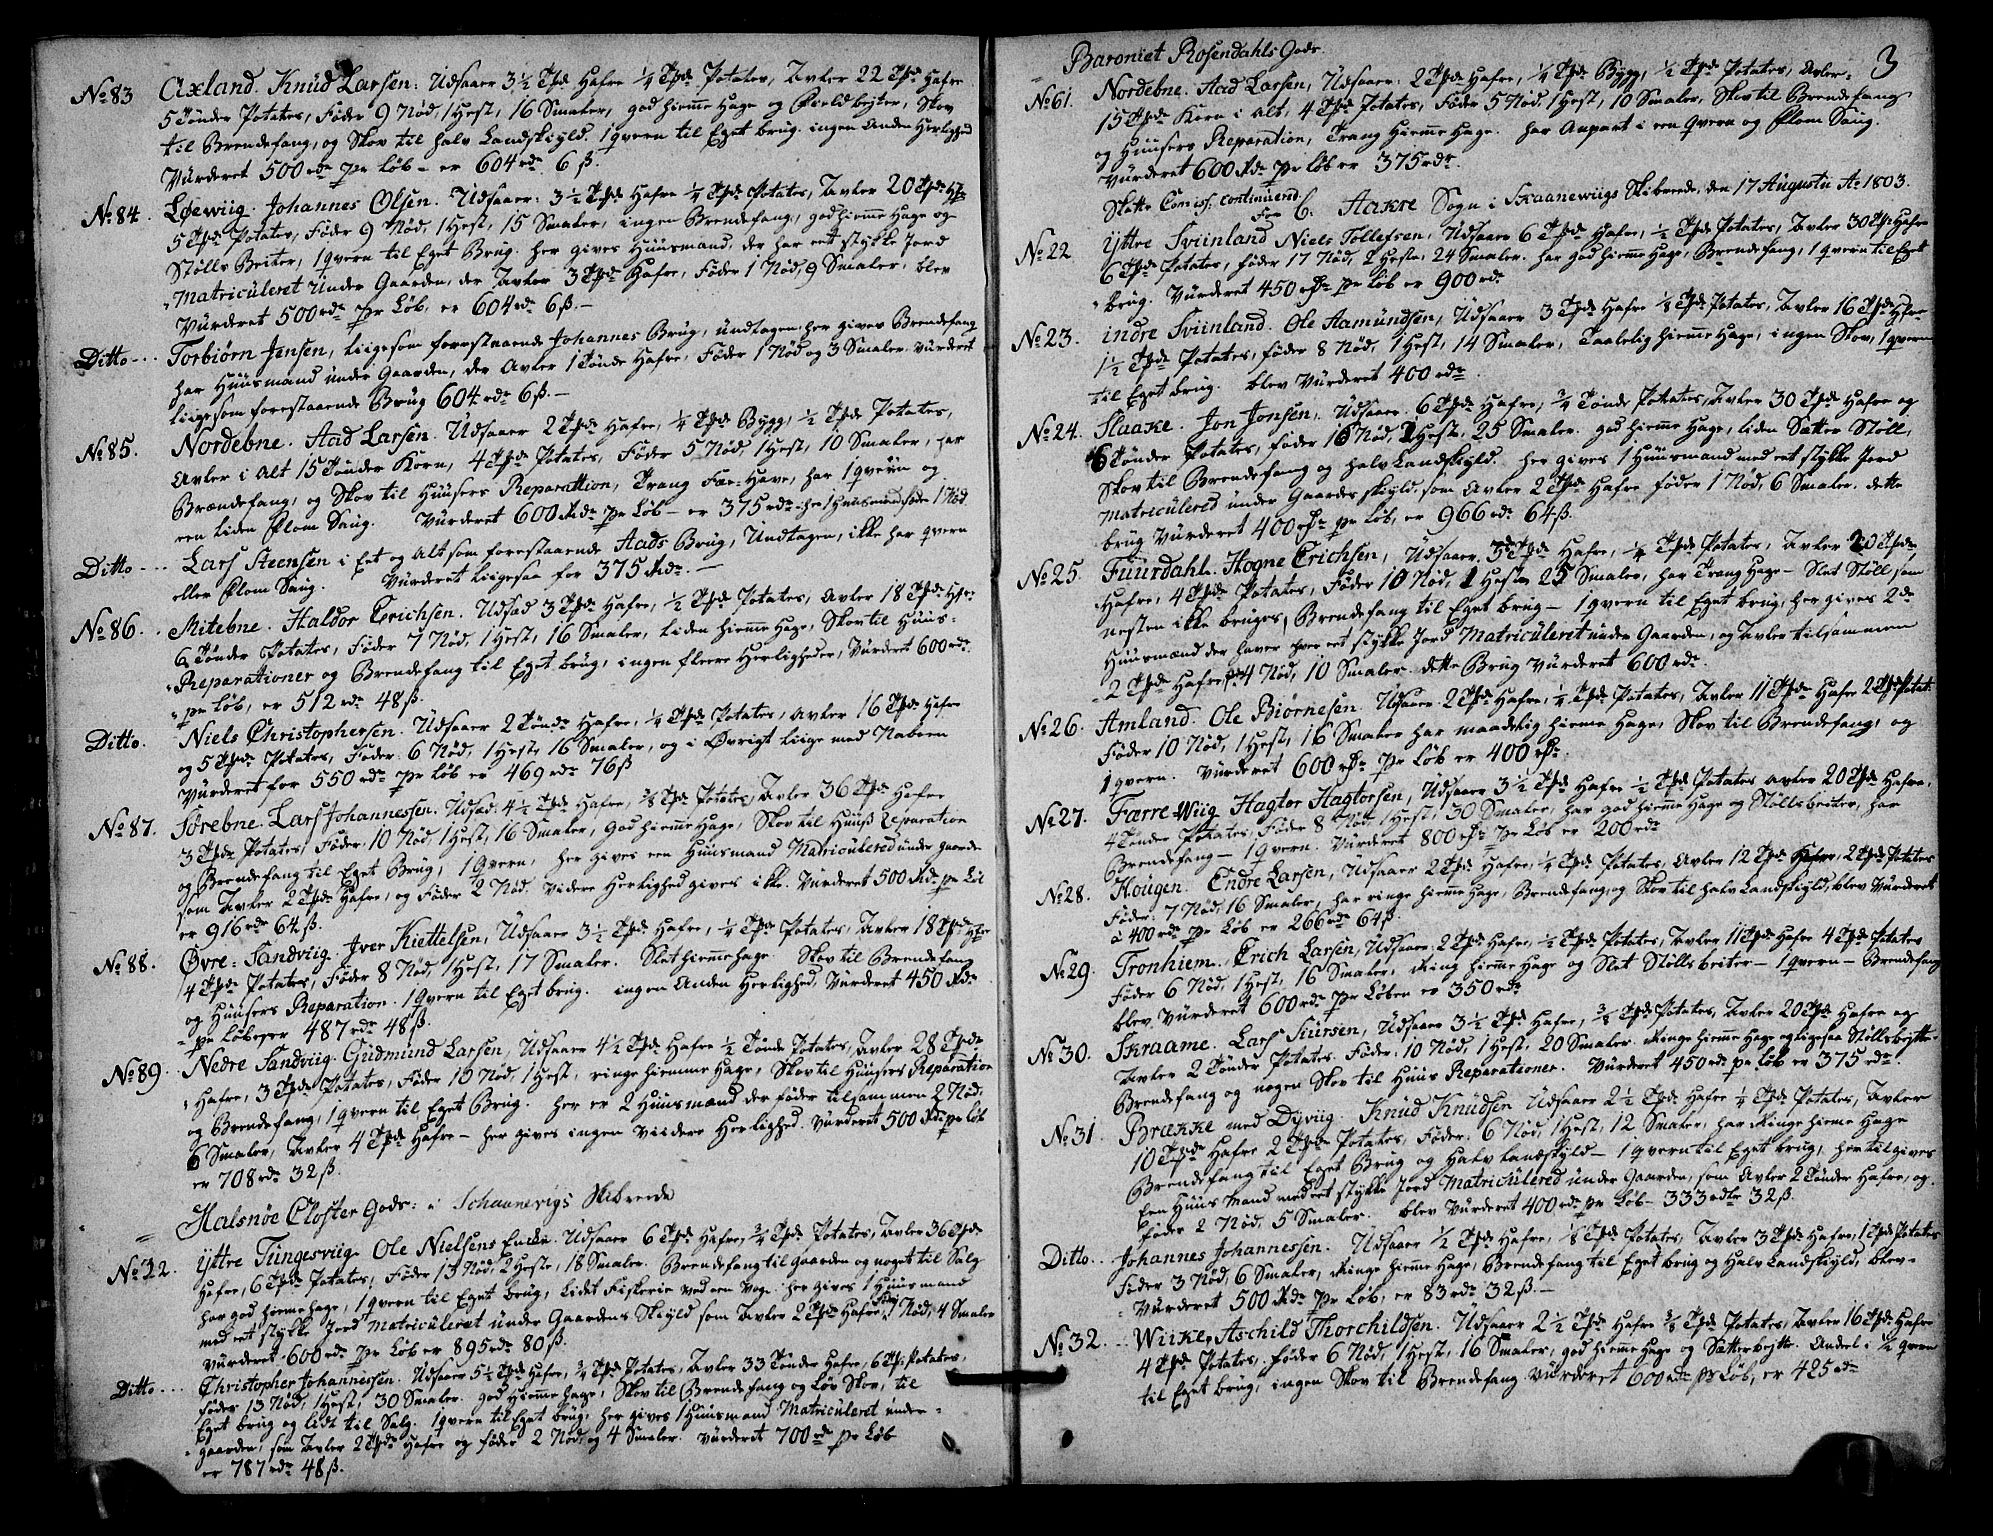 No 83 Axland. Knud Larsen: Udsaaer 3½ Tde Hafre ¼ Tde Potates, Avler 22 Tde Hafre
5 Tønder Potates, Føder 9 Nød, 1 Hest, 16 Smaler, god hieme Hage og Fieldbeiter, Skov
til Brendefang, og Skov til halv Landskyld. 1 qvern til Eget brug. ingen Anden Herlighed
Vurderet 500 rdr pr Løb - er 604 rdr 6 ß.
No 84. Løewiig. Johannes Olsen. Udsaaer: 3½ Tde Hafre ¼ Tde Potates, Avler 20 Tde Hfr
5 Tde Potates, Føder 9 Nød, 1 Hest, 15 Smaler, ingen Brendefang, god hieme Hage og
Støls Beiter, 1 qvern til Eget Brug. her gives Huusmand, der har eet stykke Jord
Matriculeret under Gaarden, der Avler 3 Tde Hafre, Føder 1 Nød, 9 Smaler, blev
Vurderet 500 rdr pr Løb, er 604 rdr 6 ß. -
Ditto - - - Torbiørn Jensen, liigesom forestaaende Johannes Brug, undtagen her gives Brendefang
har Huusmand under Gaarden, der Avler 1 Tønde Hafre, Føder 1 Nød og 3 Smaler. vurderet
liigesom forestaaende Brug 604 rdr 6 ß. -
No 85. Nordebne. Aad Larsen. Udsaaer 2 Tde Hafre, ¼ Tde Bygg, ½ Tde Potates,
Avler i Alt 15 Tønder Korn, 4 Tde Potates, Føder 5 Nød, 1 Hest, 10 Smaler, har
Brendefang, og Skov til Huusers Reparattion, Trang Fæ-Have, har 1 qvern og
een liden Flom Saug. Vurderet 600 Rdr pr Løb - er 375 rdr her 1 Huusmand føder 1 Nød
Ditto - - - Lars Steensen i Eet og Alt som forestaaende Aads Brug, Undtagen, ikke har qvern
eller Flom Saug. Vurderet liigesaa for 375 Rdr. -
No 86. Mitebne. Haldor Erichsen. Udsaa 3 Tde Hafre, ½ Tde Potates, Avler 18 Tde Hfr
6 Tønder Potates, Føder 7 Nød, 1 Hest, 16 Smaler, liden hieme Hage, Skov til Huus-
Reparationer og Brendefang til Eget brug, ingen fleere Herligheder, Vurderet 600 rdr
pr Løb, er 512 rdr 48 ß.
Ditto. Niels Christophersen. Udsaaer 2 Tønde Hafre, ¼ Tde Potates, Avler 16 Tde Hafre
og 5 Tde Potates, Føder 6 Nød, 1 Hest, 16 Smaler, og i Øvrigt liige med Naboen
Vurderet for 550 rdr pr Løb er 469 rdr 76 ß
No 87. Sørebne. Lars Johannessen. Udsaa: 4½ Tde Hafre, ⅜ Tde Potates, Avler 36 Tde Hafre
3 Tde Potates, Føder: 10 Nød, 1 Hest, 16 Smaler, God hieme Hage, Skov til Huuß Reparation
og Brendefang til Eget Brug, 1 Qvern, her gives een Huusmand Matriculered under gaarden
som Avler 2 Tde Hafre, og Føder 2 Nød. videre Herlighed gives ikke. Vurderet 500 Rdr pr Løb
er 916 rdr 64 ß.
No 88. Øvre: Sandviig. Jver Kiettelsen, Udsaaer 3½ Tde Hafre, ¼ Tde Potates, Avler 18 Tde Hfr
4 Tde Potates, Føder 8 Nød, 1 Hest, 17 Smaler. Slet hieme hage. Skov til Brendefang
og Huusers Reparation. 1 qvern til Eget brug. ingen Anden Herlighed, Vurderet 450 Rdr
pr Løb, er 487 rdr 48 ß.
No 89. Nedre Sandviig. Gudmund Larsen, Udsaaer 4½ Tde Hafre ½ Tønde Potates, Avler 28 Tde
Hafre, 3 Tde Potates, Føder 10 Nød, 1 Hest, ringe hiemme Hage, Skov til Huusers Reparation
og Brendefang, 1 qvern til Eget Brug. her er 2 Huusmænd der føder tilsammen 2 Nød,
6 Smaler, Avler 4 Tde Hafre - her gives ingen Viidere Herlighed. Vurderet 500 Rdr pr Løb
er 708 rdr 32 ß.
Halsnøe Closter Gods: i Schaanevigs Skibrede
No 22. Yttre Tungesviig. Ole Nielsens Encke. Udsaaer 6 Tde Hafre, ¾ Tde Potates, Avler 36 Tde
Hafre, 6 Tde Potates, Føder 13 Nød, 2 Heste, 18 Smaler. Brendefang til Gaarden og noget til Salg
har god hieme hage, 1 qvern til Eget brug, Lidet Fiskerie ved een Vog. her gives 1 Huusmand
med eet stykke Jord Matriculeret under Gaardens Skyld som Avler 2 Tde Hafre, føder 1 Nød, 4 Smaler
Vurderet 600 rdr pr Løb er 895 rdr 80 ß.
Ditto - - - Christopher Johannessen. Udsaaer 5½ Tde Hafre, ¾ Tde Potates, Avler 33 Tønder Hafre, 6 Tde Potates,
Føder 13 Nød, 1 Hest, 30 Smaler. god Hieme hage, Skov til Brendefang og Løv Skov, til
Eget brug og lidt til Salg. 1 qvern til Eget brug, her gives 1 Huusmand Matriculeret under-
gaarden, som Avler 2 Tde Hafre og føder 2 Nød, og 4 Smaler. Vurderet 700 rdr pr Løb
er 787 rdr 48 ß.
Baroniet Rosendahls Gods. 3
No 61. Nordebne. Aad Larsen, Udsaaer: 2 Tde Hafre, ¼ Tde Bygg, ½ Tde Potates, Avler-
15 Tde Korn i Alt, 4 Tde Potates, Føder 5 Nød, 1 Hest, 10 Smaler, Skov til Brendefang
og Huusers Reparation, Trang hieme Hage. har Anpart i een qvern og Flom Saug.
Vurderet 600 Rdr pr Løb er 375 rdr.
Skatte Comiss: continuerd. for C. Aakre Sogn i Skaanewiigs Skibrede, den 17 Augusti Ao 1803.
No 22 Yttre Sviinland Niels Tollefsen, Udsaaer 6 Tde Hafre, ½ Tde Potates, Avler 30 Tde Hafre
6 Tde Potates, føder 17 Nød, 2 Heste, 24 Smaler. har god hieme Hage, Brendefang, 1 qvern til Eget
brug. Vurderet 450 rdr pr Løb er 900 rdr
No 23. indre Sviinland. Ole Aamundsen, Udsaaer 3 Tde Hafre ⅛ Tde Potates, Avler 16 Tde Hfre
1½ Tde Potates, føder 8 Nød, 1 Hest, 14 Smaler, Taalelig hieme Hage, ingen Skov, 1 qvern
til Eget brug. blev Vurderet 400 rdr
No 24. Slaake. Jon Jonsen, Udsaaer 6 Tde Hafre, ¾ Tønde Potates, Avler 30 Tde Hafre og
6 Tønder Potates, føder 16 Nød, 1 Hest, 25 Smaler. god hieme Hage, liden Sætter Støll,
Skov til Brendefang og halv Landskyld. her gives 1 Huusmand med eet stykke Jord
Matriculered under Gaardes skyld, som Avler 2 Tde Hafre føder 1 Nød, 6 Smaler. dette
brug Vurderet 400 rdr pr Løb, er 966 rdr 64 ß.
No 25. Fuurdahl. Hogne Erichsen, Udsaaer 3 Tde Hafre, ¼ Tde Potates, Avler 20 Tde
Hafre, 4 Tde Potates, Føder 10 Nød, 1 Hest 25 Smaler, har Trang Hage - Slet Støll som
nesten ikke bruges, Brendefang til Eget brug - 1 qvern til Eget brug, her gives 2de
Huusmænd der haver hver eet stykke Jord Matriculeret under Gaarden, og Avler tilsammen
2 Tde Hafre, 4 Nød, 10 Smaler. dette Brug Vurderet 600 rdr.
No 26. Amland. Ole Biørnesen. Udsaaer 2 Tde Hafre, ¼ Tde Potates, Avler 11 Tde Hafre 2 Tde Potat:
Føder 10 Nød, 1 Hest, 16 Smaler har maadelig hieme Hage, Skov til Brendefang, og
1 qvern. Vurderet 600 rdr pr Løb er 400 rdr.
No 27. Færre-Wiig Hagtor Hagtorsen, Udsaaer 3½ Tde Hafre ½ Tde Potates avler 20 Tde Hafre,
4 Tønder Potates, Føder 8 Nød, 1 Hest, 30 Smaler, har god hieme Hage og Støllsbeiter, har
Brendefang - 1 qvern. Vurderet 800 rdr pr Løb er 200 rdr
No 28. Hougen. Endre Larsen, Udsaaer 2 Tde Hafre, ¼ Tde Potates, Avler 12 Tde Hafre, 2 Tde Potates
Føder: 7 Nød, 16 Smaler, har ringe hieme Hage, Brendefang, og Skov til halv Landskyld, blev Vurderet
à 400 rdr pr Løb er 266 rdr 64 ß.
No 29. Tronhiem. Erich Larsen, Udsaaer 2 Tde Hafre, ½ Tde Potates, Avler 11 Tde Hafre 4 Tde Potates
Føder 6 Nød, 1 Hest, 16 Smaler, Ring hieme Hage og Slet Støllsbeiter - 1 qvern - Brendefang
blev Vurderet 600 rdr pr Løben er 350 rdr
No 30. Skraame. Lars Siursen, Udsaaer 3½ Tde Hafre, ⅜ Tde Potates, Avler 20 Tde Hafre og
Avler 2 Tønder Potates. Føder: 10 Nød, 1 Hest, 20 Smaler. Ringe hieme Hage og ligesaa Støllsbeitte-
Brendefang og nogen Skov til Huus Reparationer. Vurderet 450 rdr pr Løb er 375 rdr
No 31. Brække med Dyviig. Knud Knudsen Udsaaer 2½ Tde Hafre ¼ Tde Potates, Avler
10 Tde Hafre 2 Tde Potates, Føder: 6 Nød, 1 Hest, 12 Smaler, har Ringe hieme Hage
Brendefang til Eget Brug og Halv Landskyld - 1 qvern til Eget brug, her tilgives
Een Huusmand med eet stykke Jord Matriculered under Gaarden, som Avler 2 Tønder Hafre, og
føder 2 Nød, 5 Smaler. blev Vurderet 400 rdr pr Løb - 333 rdlr 32 ß.
Ditto. . Johannes Johannessen. Udsaaer ½ Tde Hafre, ⅛ Tde Potates, Avler 3 Tde Hafre, 1 Tde Potates
Føder 3 Nød, 6 Smaler, Ringe hieme Hage, Brendefang til Eget brug og Halv Landskyld, blev-
Vurderet 500 Rdr pr Løb, er 83 rdr 32 ß. -
No 32. - - Wiike, Aschild Thorchildsen. Udsaaer 2½ Tde Hafre ⅜ Tde Potates, Avler 16 Tde Hafre
4 Tde Potates, føder 6 Nød, 1 Hest, 16 Smaler, god hieme Hage og Sætterbeitte. Andeel i ½ qvern
til Eget brug, ingen Skov til Brendefang Vurderet 600 rdr pr Løb, er 425 rdr